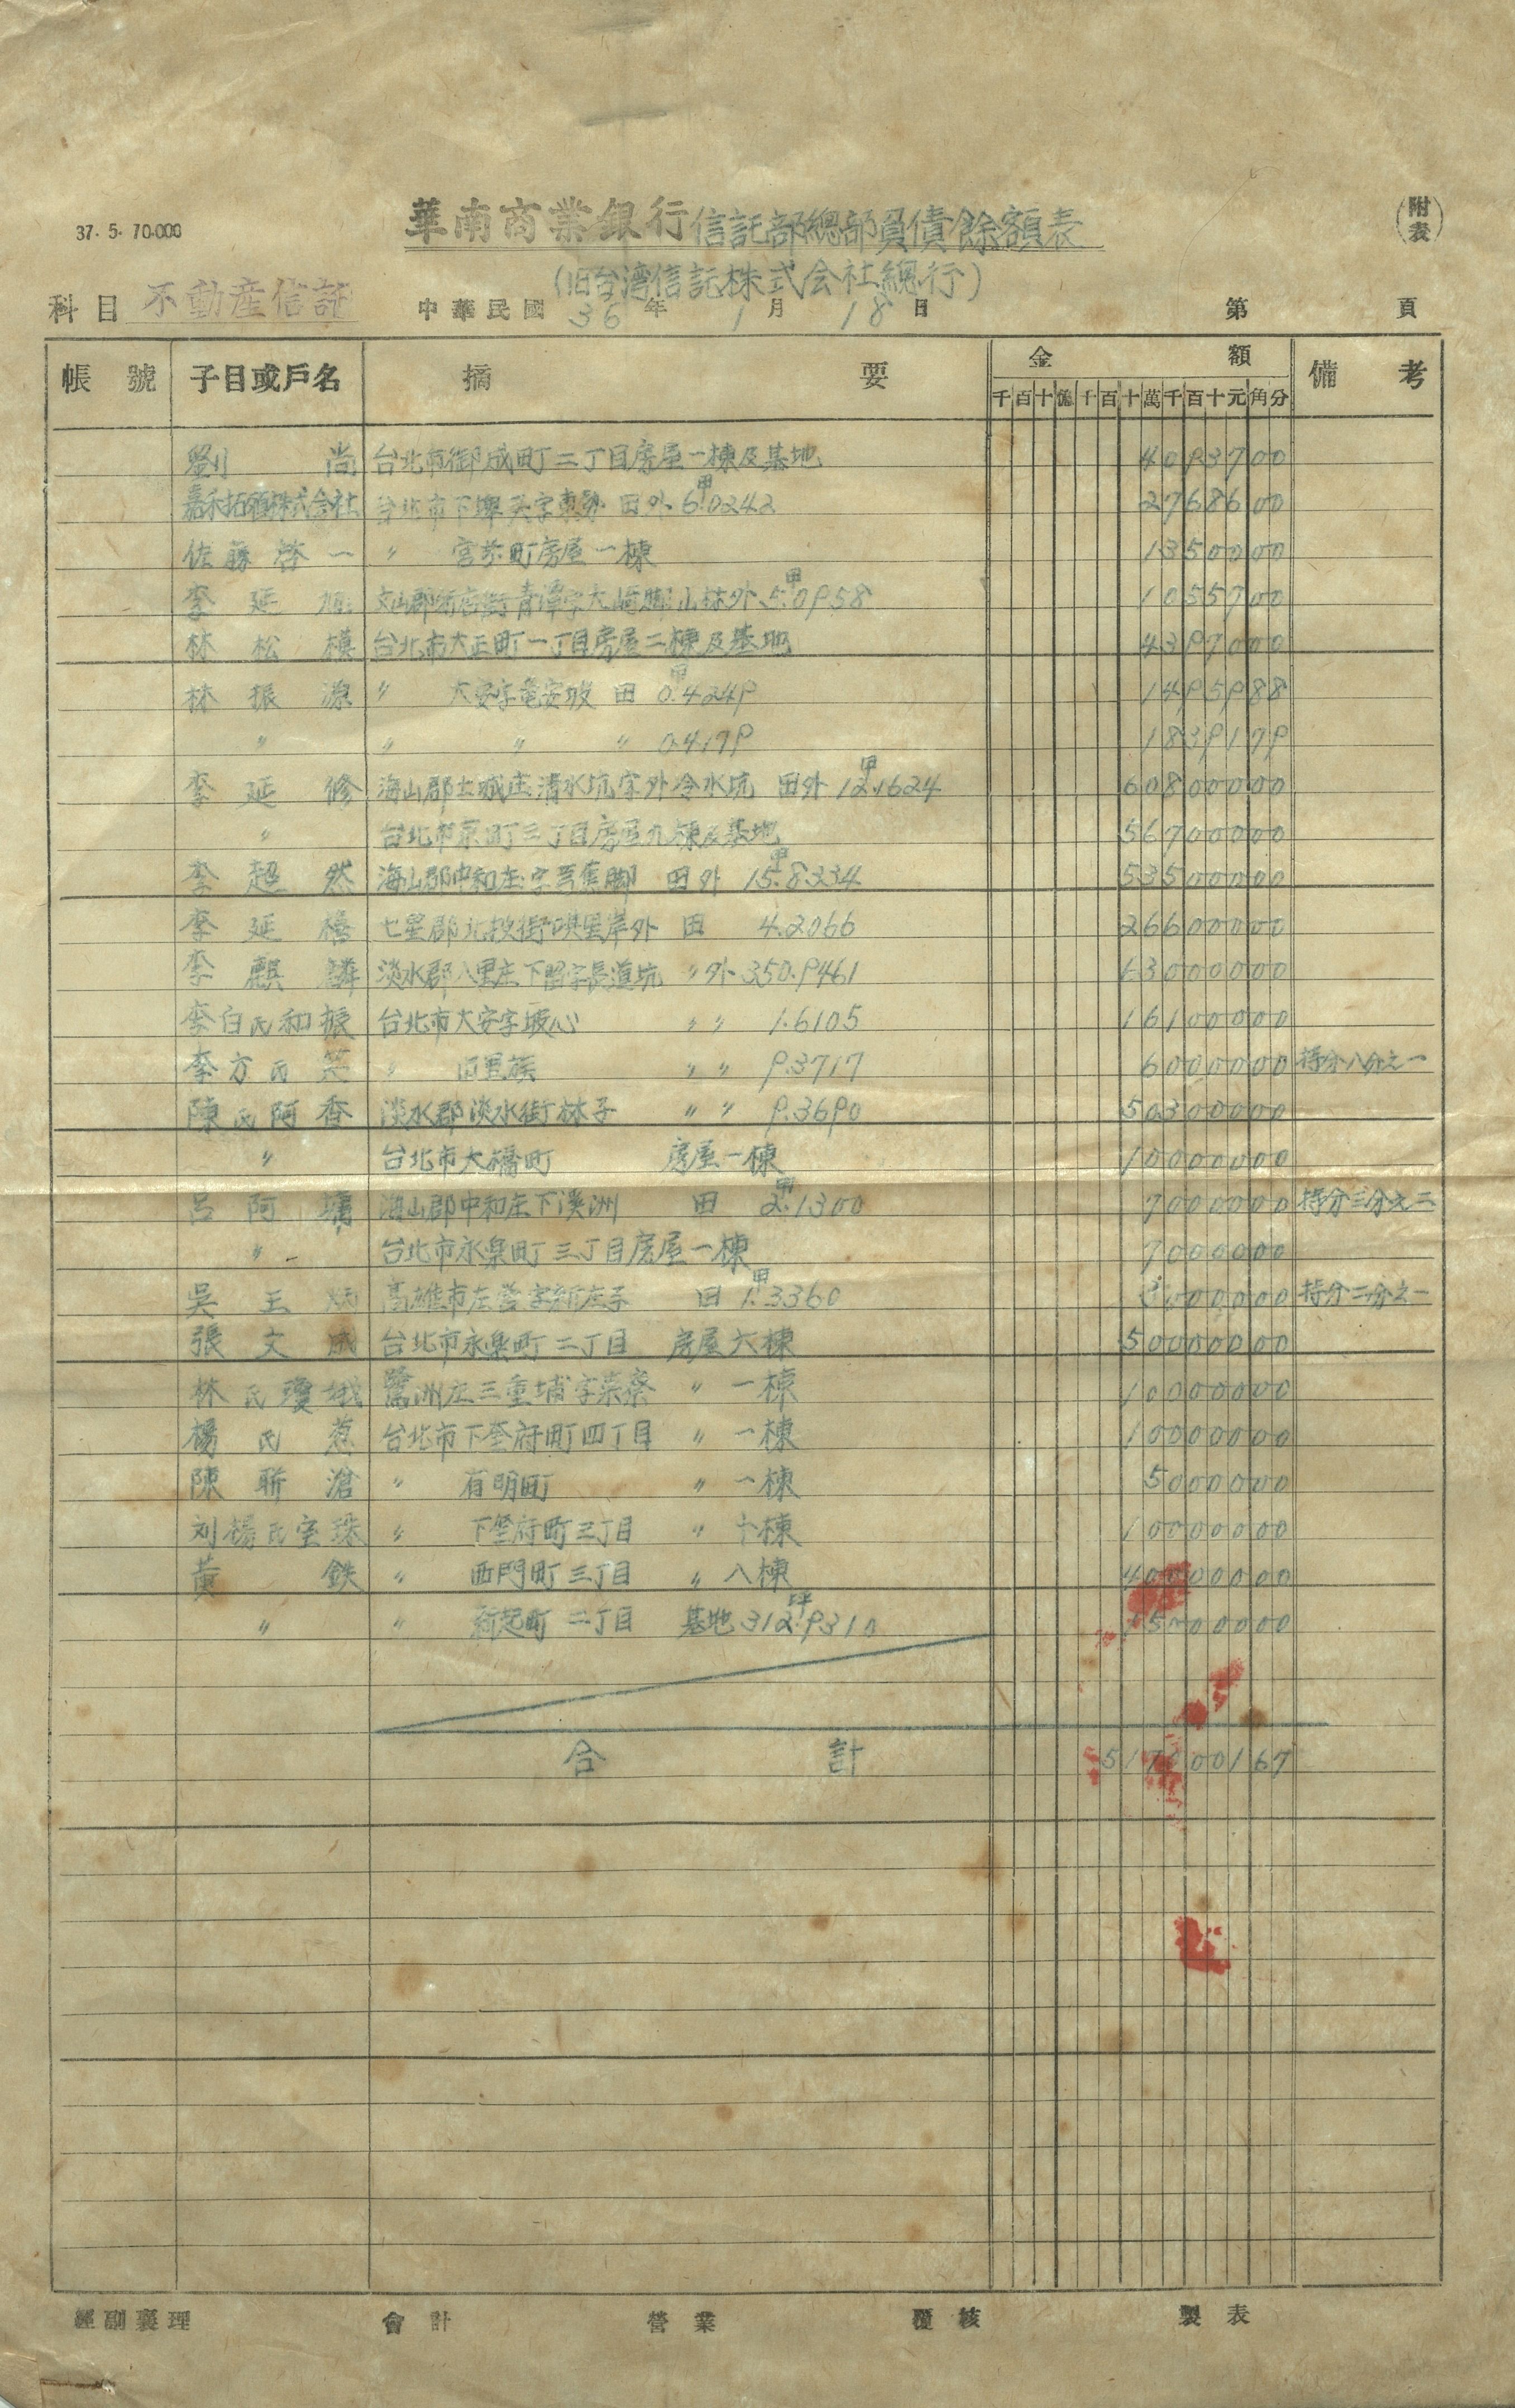 37. 5. 70.000
華南商業銀行信託部總部負債餘額表
(附表)
(旧台湾信託株式会社總行)
科目 不動産信託 中華民國 36 年 1 月 18 日 第 頁
帳號 子目或戶名 摘要 金額 備考
千百十億千百十萬千百十元角分
劉 尚 台北市御成町二丁目房屋一棟及基地 4093700
嘉禾拓殖株式会社 台北市下埤头字東勢 田外 6甲.0242 2768600
佐藤啓一 〃 宮前町房屋一棟 1350000
李延 文山郡新店街青潭字大崎脚山林外 5甲.0958 1055700
林松模 台北市大正町一丁目房屋二棟及基地 4397000
林振源 〃 大安字竜安坡 田 0甲.4249 1495988
〃 〃 〃 〃 0.4179 1839179
李延修 海山郡土城庄清水坑字外冷水坑 田外 12甲.1624 60800000
〃 台北市京町三丁目房屋九棟及基地 56700000
李超然 海山郡中和庄字芎蕉脚 田外 15甲.8334 53500000
李延禧 七星郡北投街唭里岸外 田 4.2066 26600000
李麒麟 淡水郡八里庄下罟字長道坑 〃外 350.9461 13000000
李白氏和振 台北市大安字坡心 〃 〃 1.6105 16100000
李方氏 〃 旧里族 〃 〃 9.3717 6000000 持分八分之一
陳氏阿香 淡水郡淡水街林子 〃 〃 9.3690 50300000
〃 台北市大橋町 房屋一棟 10000000
呂阿墉 海山郡中和庄下溪洲 田 2甲.1300 7000000 持分三分之二
〃 台北市永樂町三丁目房屋一棟 7000000
吳王 高雄市左営字新庄子 田 1甲.3360 3000000 持分二分之一
張文成 台北市永樂町二丁目 房屋六棟 50000000
林氏瓊娥 鷺洲庄三重埔字菜寮 〃 一棟 10000000
楊氏惹 台北市下奎府町四丁目 〃 一棟 10000000
陳聯滄 〃 有明町 〃 一棟 5000000
刘楊氏宝珠 〃 下奎府町三丁目 〃 十棟 10000000
黃 鉄 〃 西門町三丁目 〃 八棟 40000000
〃 〃 新起町二丁目 基地 312坪.9310 15000000
合計 517000167
經副襄理 會計 營業 覆核 製表